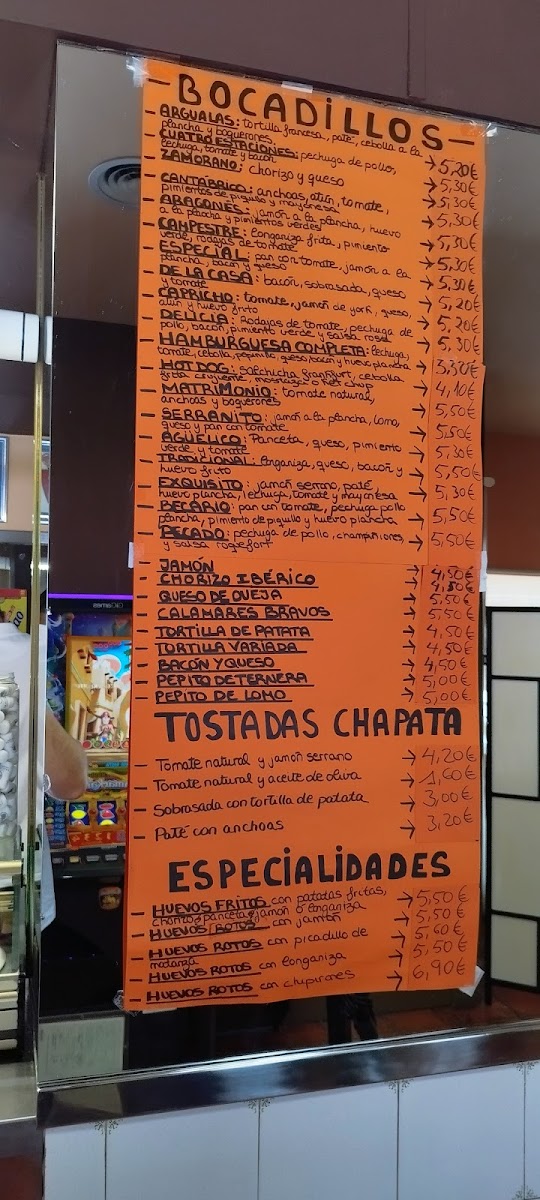 - BOCADILLOS -
- ARGUALAS: tortilla francesa, paté, cebolla a la
plancha y boquerones. → 5,20€
- CUATRO ESTACIONES: pechuga de pollo,
lechuga, tomate y bacón → 5,30€
- ZAMORANO: chorizo y queso → 5,30€
- CANTÁBRICO: anchoas, atún, tomate,
pimientos de piquillo y mayonesa → 5,30€
- ARAGONÉS: jamón a la plancha, huevo
a la plancha y pimientos verdes → 5,30€
- CAMPESTRE: longaniza frita, pimiento
verde, rodajas de tomate → 5,30€
- ESPECIAL: pan con tomate, jamón a la
plancha, bacón y queso → 5,30€
- DE LA CASA: bacón, sobrasada, queso
y tomate → 5,20€
- CAPRICHO: tomate, jamón de york, queso,
atún y huevo frito → 5,20€
- DELICIA: Rodajas de tomate, pechuga de
pollo, bacon, pimiento verde y salsa rosa → 5,30€
- HAMBURGUESA COMPLETA: lechuga,
tomate, cebolla, pepinillo, queso, bacón y huevo plancha → 3,30€
- HOT DOG: salchicha frankfurt, cebolla
frita crujiente, mostaza o ketchup → 4,10€
- MATRIMONIO: tomate natural,
anchoas y boquerones → 5,50€
- SERRANITO: jamón a la plancha, lomo,
queso y pan con tomate → 5,50€
- AGÜELICO: Panceta, queso, pimiento
verde y tomate → 5,30€
- TRADICIONAL: longaniza, queso, bacón y
huevo frito → 5,50€
- EXQUISITO: jamón serrano, paté,
huevo plancha, lechuga, tomate y mayonesa → 5,30€
- BECARIO: pan con tomate, pechuga pollo
plancha, pimiento de piquillo y huevo plancha → 5,50€
- PECADO: pechuga de pollo, champiñones,
y salsa roquefort → 5,50€
- JAMÓN → 4,50€
- CHORIZO IBÉRICO → 4,50€
- QUESO DE OVEJA → 5,50€
- CALAMARES BRAVOS → 5,50€
- TORTILLA DE PATATA → 4,50€
- TORTILLA VARIADA → 4,50€
- BACÓN Y QUESO → 4,50€
- PEPITO DE TERNERA → 5,00€
- PEPITO DE LOMO → 5,00€
TOSTADAS CHAPATA
- Tomate natural y jamón serrano → 4,20€
- Tomate natural y aceite de oliva → 1,60€
- Sobrasada con tortilla de patata → 3,00€
- Paté con anchoas → 3,20€
ESPECIALIDADES
- HUEVOS FRITOS con patatas fritas,
chorizo, panceta, jamón o longaniza → 5,50€
- HUEVOS ROTOS con jamón → 5,50€
- HUEVOS ROTOS con picadillo de
matanza → 5,60€
- HUEVOS ROTOS con longaniza → 5,50€
- HUEVOS ROTOS con chipirones → 6,90€